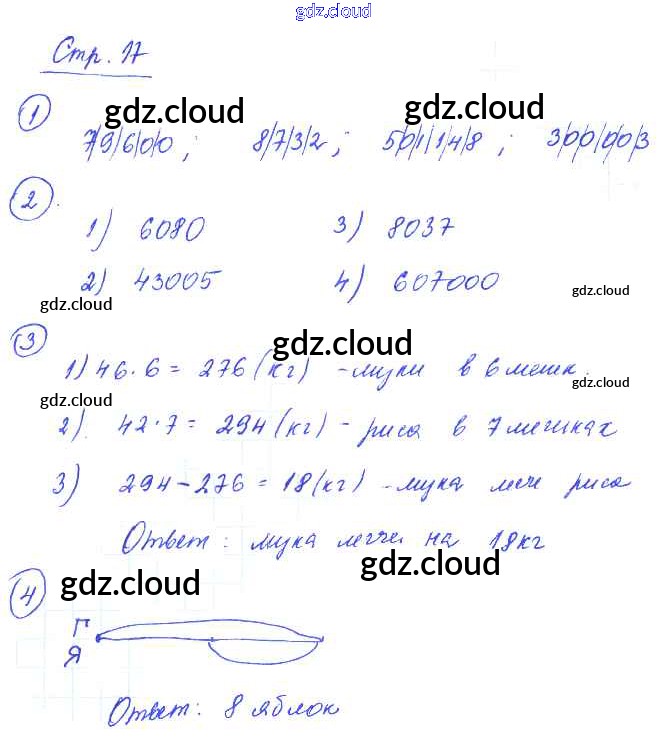 gdz.cloud
Стр. 17
gdz.cloud gdz.cloud
1 7/9/6/0/0 ; 8/7/3/2 ; 50/1/1/4/8 ; 3/0/0/0/0/3
2.
1) 6080 3) 8037
2) 43005 4) 607000
gdz.cloud gdz.cloud
3 gdz.cloud
1) 46·6 = 276 (кг) - муки в 6 мешк.
gdz.cloud gdz.cloud
2). 42·7 = 294 (кг) - риса в 7 мешках
3) 294 - 276 = 18 (кг) - мука легче риса
Ответ: мука легче на 18 кг
4 gdz.cloud gdz.cloud
Г
Я
Ответ: 8 яблок